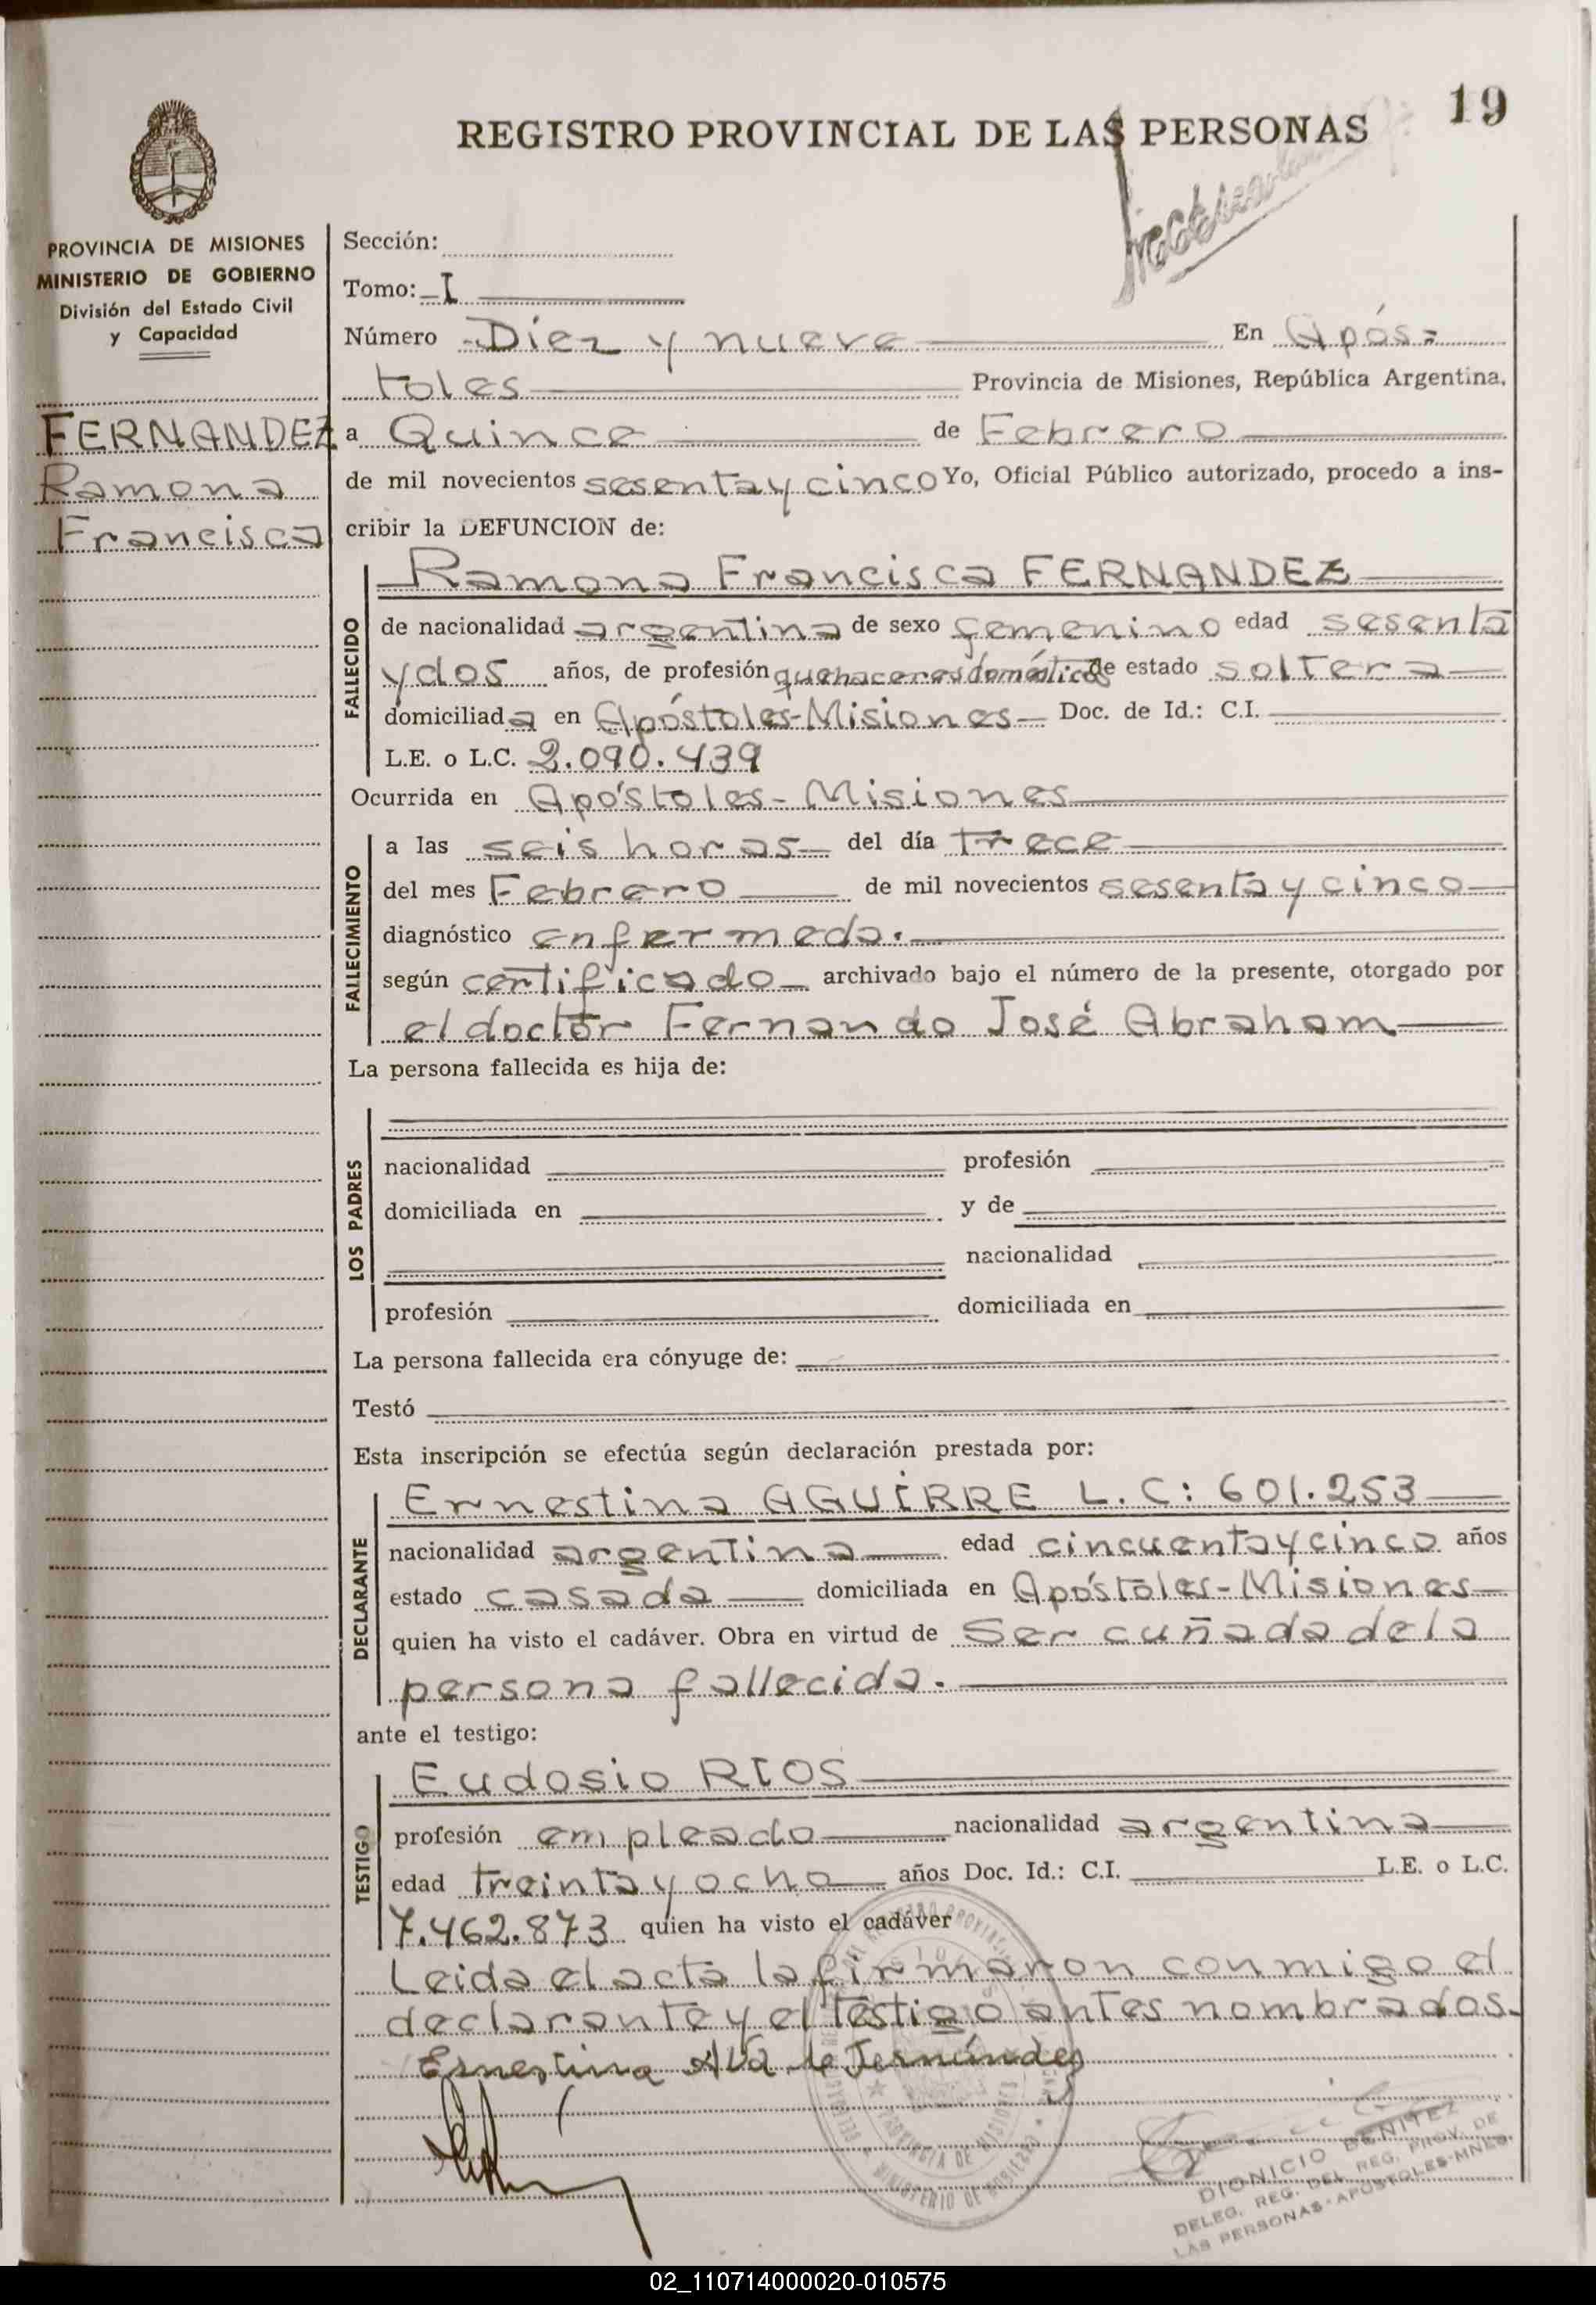 19
REGISTRO PROVINCIAL DE LAS PERSONAS
PROVINCIA DE MISIONES
MINISTERIO DE GOBIERNO
División del Estado Civil
y Capacidad
FERNANDEZ
Ramona
Francisca
Sección:
Tomo: I
Número Diez y nueve En Após=
toles Provincia de Misiones, República Argentina,
a Quince de Febrero
de mil novecientos sesenta y cinco Yo, Oficial Público autorizado, procedo a ins-
cribir la DEFUNCION de:
Ramona Francisca FERNANDEZ
FALLECIDO
de nacionalidad argentina de sexo femenino edad sesenta
y dos años, de profesión quehaceres domésticos de estado soltera
domiciliada en Apóstoles-Misiones Doc. de Id.: C.I.
L.E. o L.C. 2.090.439
Ocurrida en Apóstoles-Misiones
FALLECIMIENTO
a las seis horas del día trece
del mes Febrero de mil novecientos sesenta y cinco
diagnóstico enfermeda.
según certificado archivado bajo el número de la presente, otorgado por
el doctor Fernando José Abraham
La persona fallecida es hija de:
LOS PADRES
nacionalidad profesión
domiciliada en y de
nacionalidad
profesión domiciliada en
La persona fallecida era cónyuge de:
Testó
Esta inscripción se efectúa según declaración prestada por:
Ernestina AGUIRRE L.C: 601.253
DECLARANTE
nacionalidad argentina edad cincuenta y cinco años
estado casada domiciliada en Apóstoles-Misiones
quien ha visto el cadáver. Obra en virtud de Ser cuñada de la
persona fallecida.
ante el testigo:
Eudosio RIOS
TESTIGO
profesión empleado nacionalidad argentina
edad treinta y ocho años Doc. Id.: C.I. L.E. o L.C.
7.462.873 quien ha visto el cadáver
Leida el acta la firmaron conmigo el
declarante y el testigo antes nombrados.
Ernestina de Fernández
DIONICIO BENITEZ
DELEG. REG. DEL REG. PROV. DE
LAS PERSONAS-APOSTOLES-MNES.
02_110714000020-010575